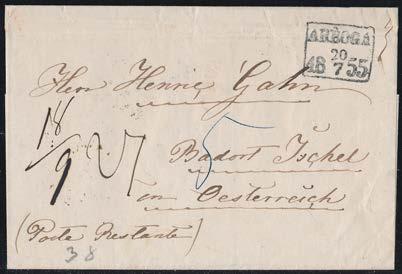 ARBOGA
20
18 7 55
Herr Henric Gahn
18/9
27
5
Badort Ischel
in Oesterreich
(Poste Restante)
38